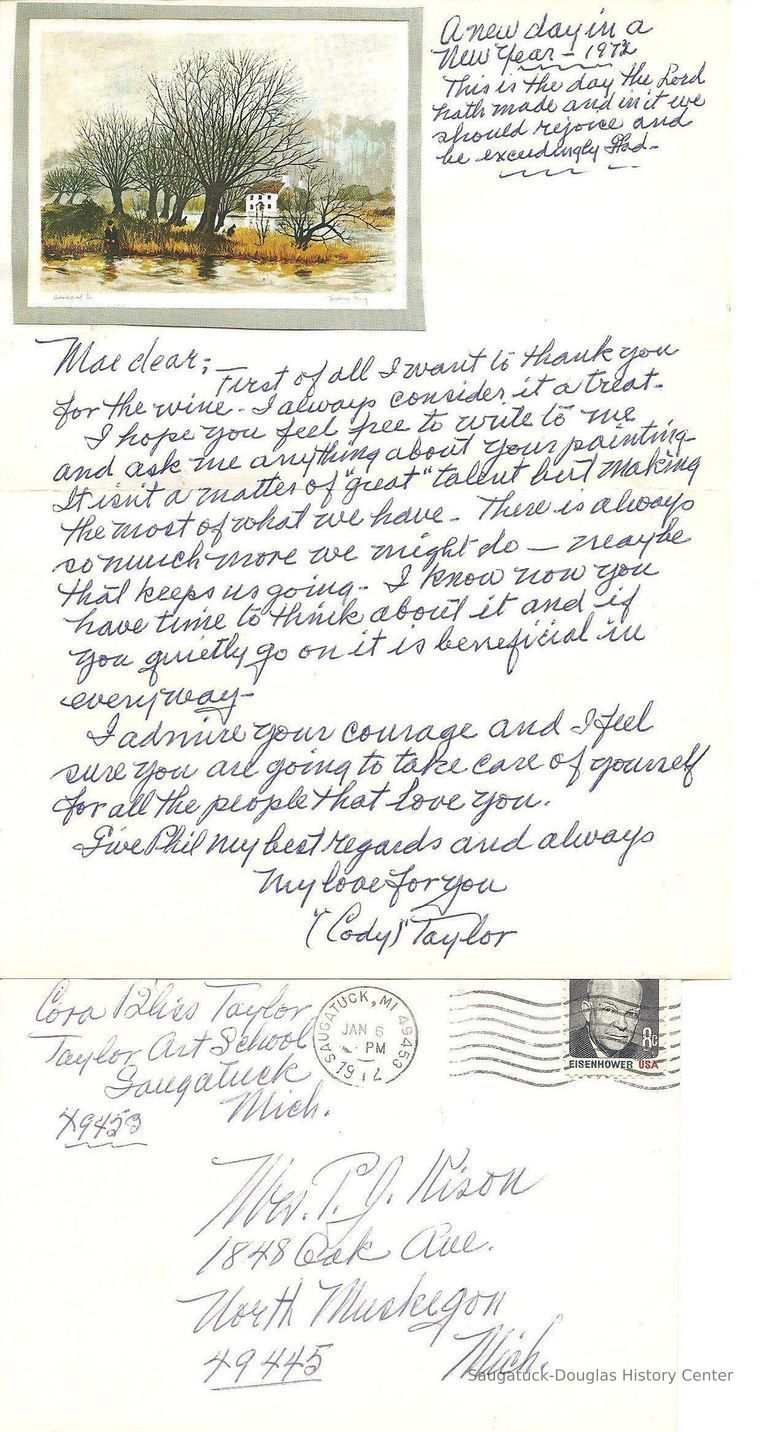 A new day in a
New Year - 1972
This is the day the Lord
hath made and in it we
should rejoice and
be exceedingly Glad -
Mae dear; -
First of all I want to thank you
for the wine - I always consider it a treat -
I hope you feel free to write to me
and ask me anything about your painting -
It isn't a matter of "great" talent but making
the most of what we have - There is always
so much more we might do - maybe
that keeps us going - I know now you
have time to think about it and if
you quietly go on it is beneficial in
everyway -
I admire your courage and I feel
sure you are going to take care of yourself
for all the people that love you.
Give Phil my best regards and always
My love for you
"(Cody)" Taylor
Cora Bliss Taylor
Taylor Art School
Saugatuck
Mich.
49453
SAUGATUCK, MI 49453
JAN 6
PM
8c
EISENHOWER USA
Mrs. P. J. Kison
1848 Oak Ave.
North Muskegon
49445 Mich.
Saugatuck-Douglas History Center